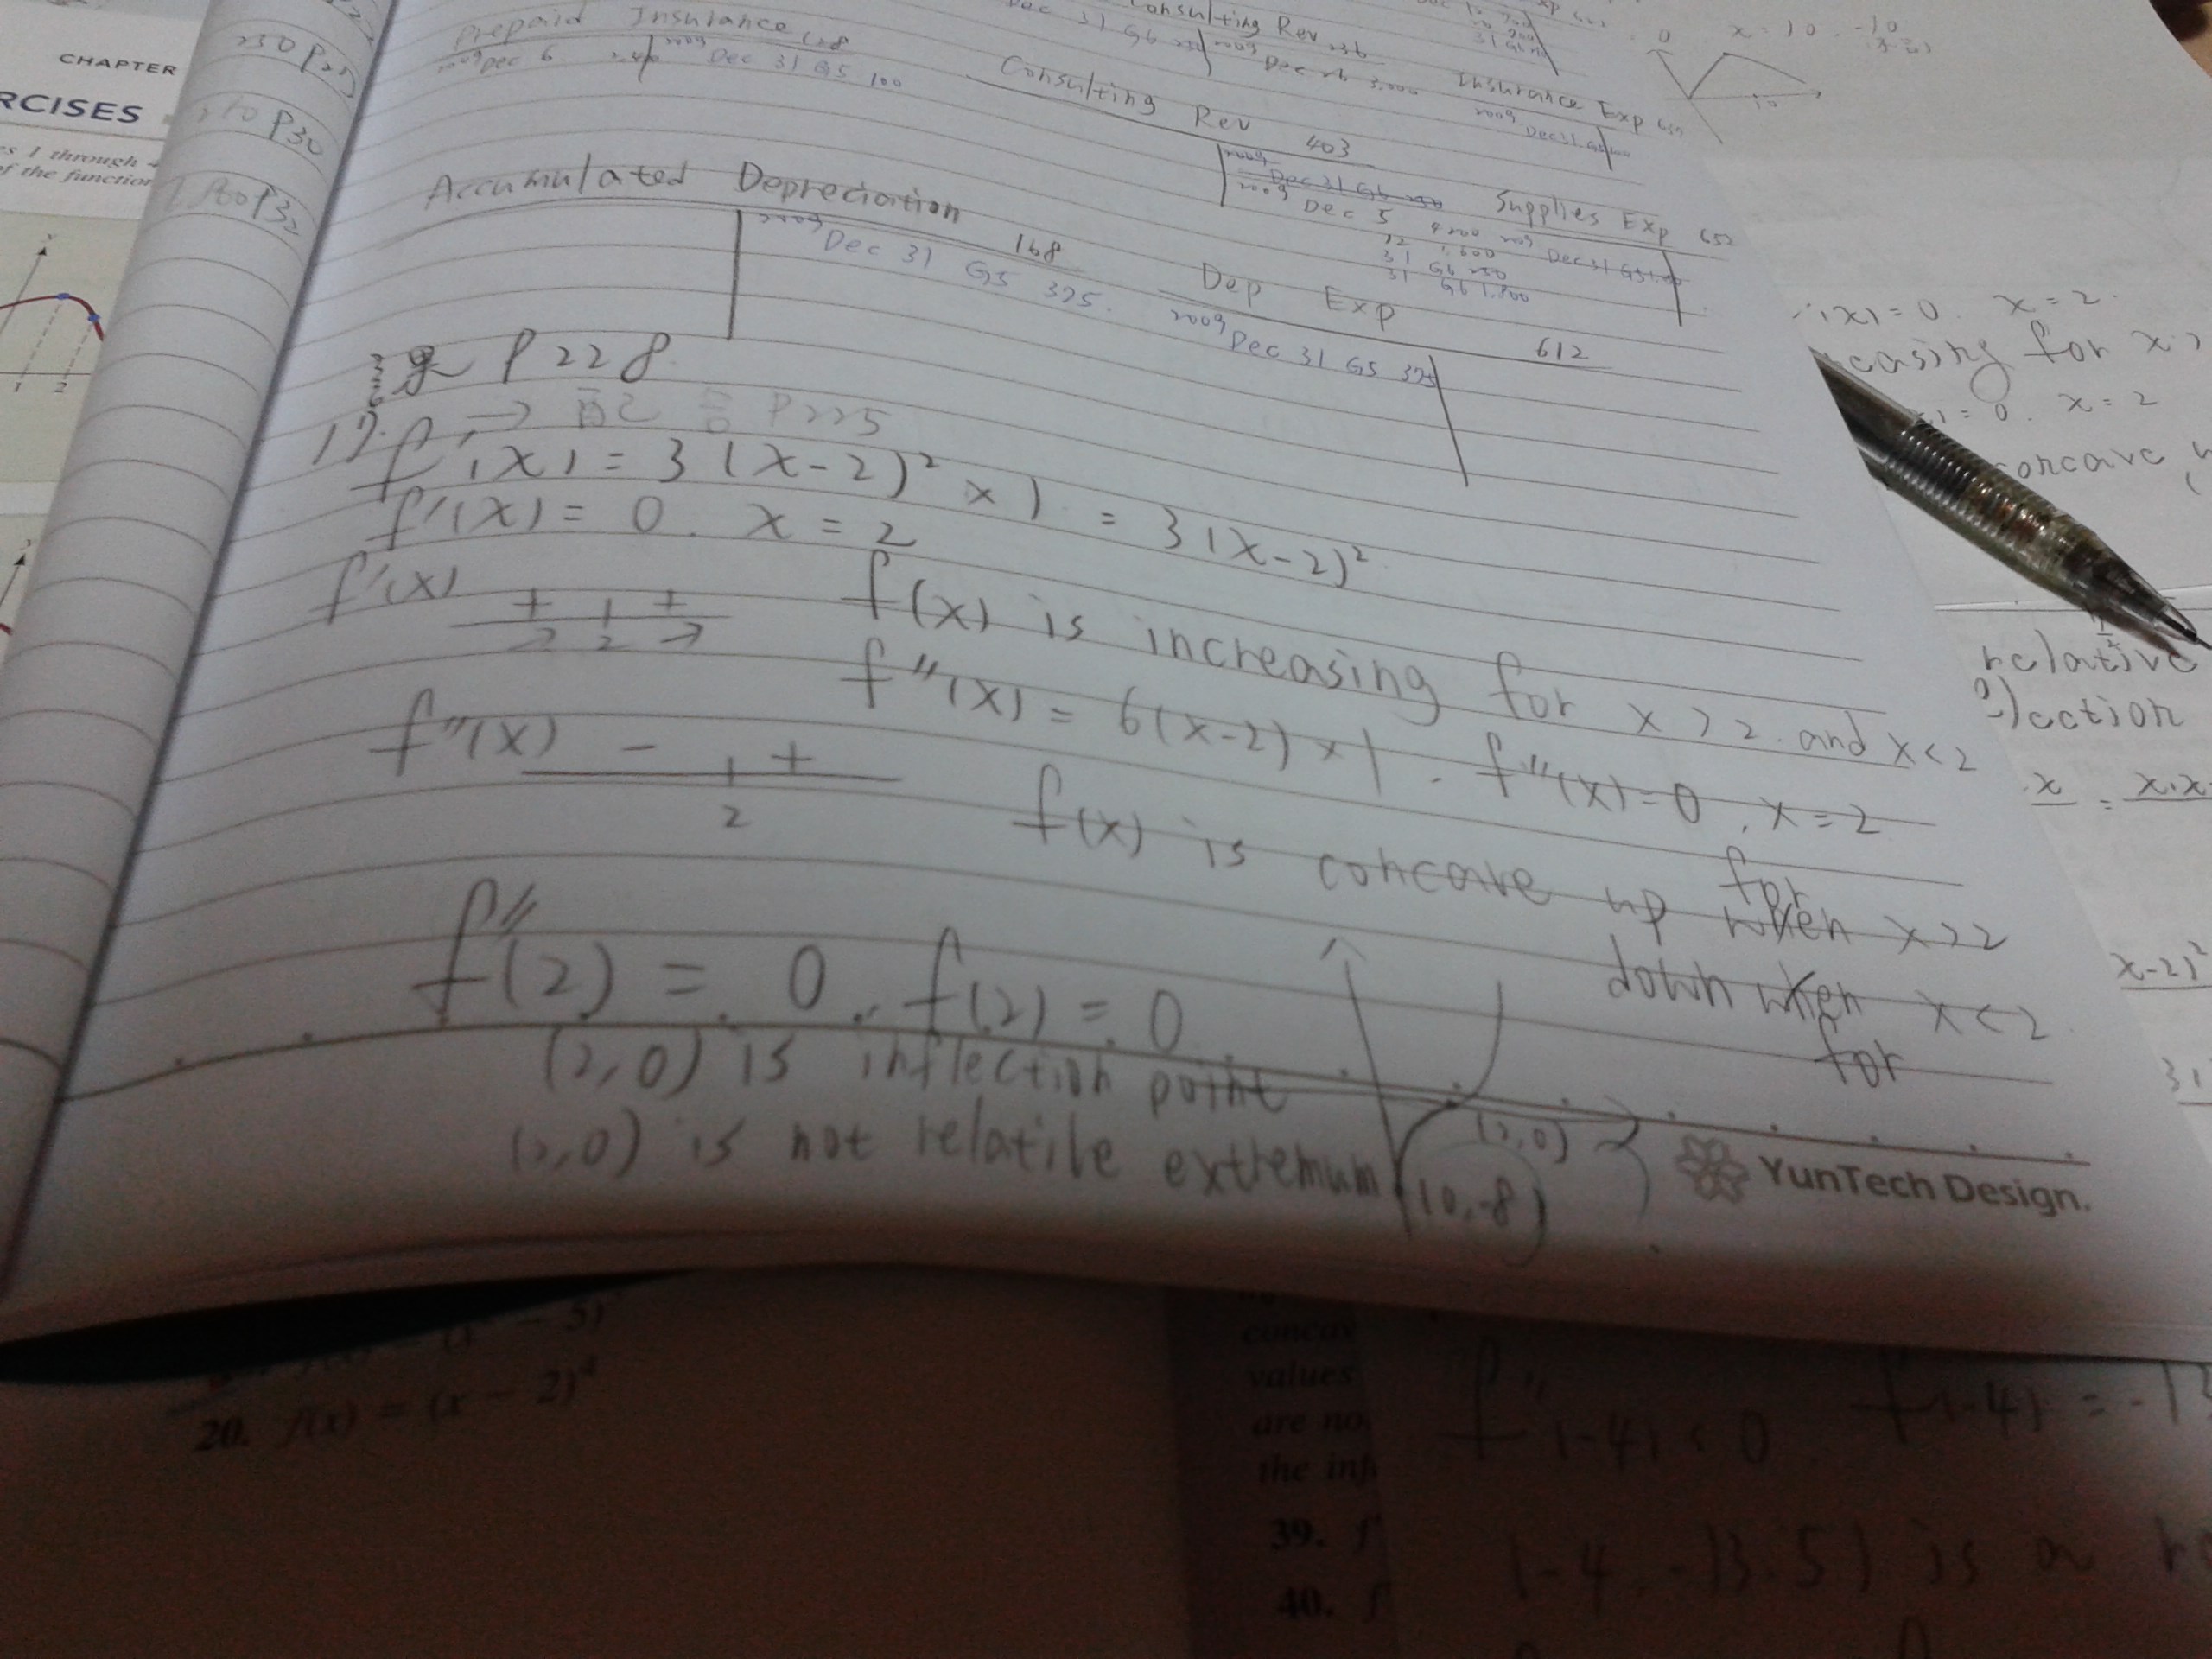 CHAPTER
RCISES
s 1 through 4
of the function
1 2
230 P25
P30
P32
Prepaid Insurance 128
2009 Dec 6
2009 Dec 31 G5 100
Consulting Rev 236
Dec 31 G6
2009 Dec 26 3,000
Insurance Exp
2009 Dec 31 G5
x = 10 -10
10
Consulting Rev 403
2009 Dec 31 G6
2009 Dec 5 4200
12 1,600
31 G6
31 G6 1,800
Supplies Exp 652
2009 Dec 31 G5
Accumulated Depreciation 168
2009 Dec 31 G5 375.
Dep Exp 612
2009 Dec 31 G5 375
P228
→ P225
17. f'(x) = 3(x-2)² × 1 = 3(x-2)²
f'(x) = 0. x = 2
f'(x) + + 2
f(x) is increasing for x > 2 and x < 2
f''(x) = 6(x-2) × 1. f''(x) = 0, x = 2
f''(x) - + 2
f(x) is concave up when for x > 2
down when for x < 2
f''(2) = 0. f(2) = 0
(2,0) is inflection point
(2,0) is not relatile extremum
(2,0)
(0,-8)
YunTech Design.
(x) = 0. x = 2.
easing for x >
= 0. x = 2
concave
relative
x = x·x
x-2)²
20. f(x) = (x - 2)⁴
concav
values
are no
the infl
39. f
40. f
f''(-4) < 0. f(-4) = -1
(-4, -13.5) is a